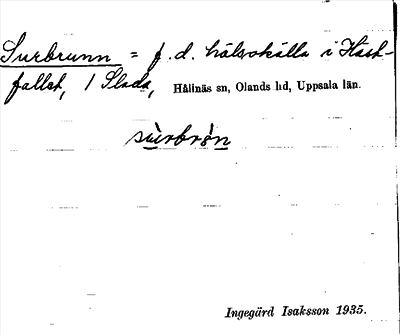 Surbrunn = f.d. hälsokälla i Häst-
fallet, 1 Slada, Hållnäs sn, Olands hd, Uppsala län.
sùrbrøn
Ingegärd Isaksson 1935.